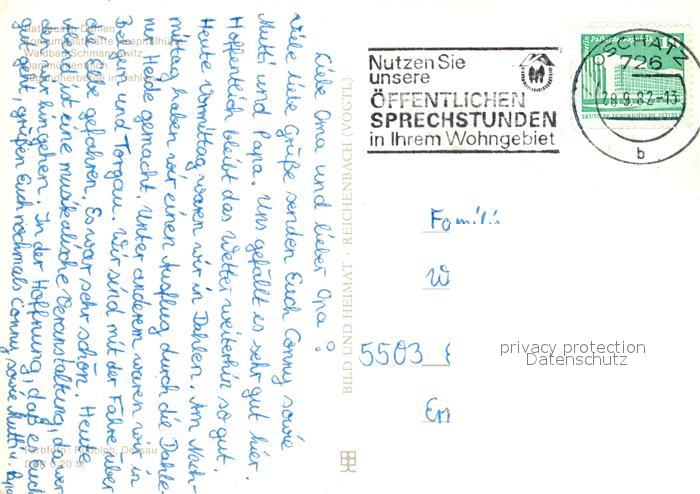 Liebe Oma und lieber Opa!
Viele liebe Grüße senden Euch Conny sowie
Mutti und Papa. Uns gefällt es sehr gut hier.
Hoffentlich bleibt das Wetter weiterhin so gut.
Heute Vormittag waren wir in Dahlen. Am Nach-
mittag haben wir einen Ausflug durch die Dahle-
ner Heide gemacht. Unter anderem waren wir in
und Torgau. Wir sind mit der Fähre über
die Elbe gefahren. Es war sehr schön. Heute
ist eine musikalische Veranstaltung, da
wir hingehen. In der Hoffnung, daß es Euch
gut geht, grüßen Euch nochmals Conny sowie Mutti u. Papa
BILD UND HEIMAT · REICHENBACH (VOGTL)
Nutzen Sie
unsere
ÖFFENTLICHEN
SPRECHSTUNDEN
in Ihrem Wohngebiet
OSCHATZ
726
28.9.82-13
b
DEUTSCHE DEMOKRATISCHE REPUBLIK
Familie
W
5503
privacy protection
Datenschutz